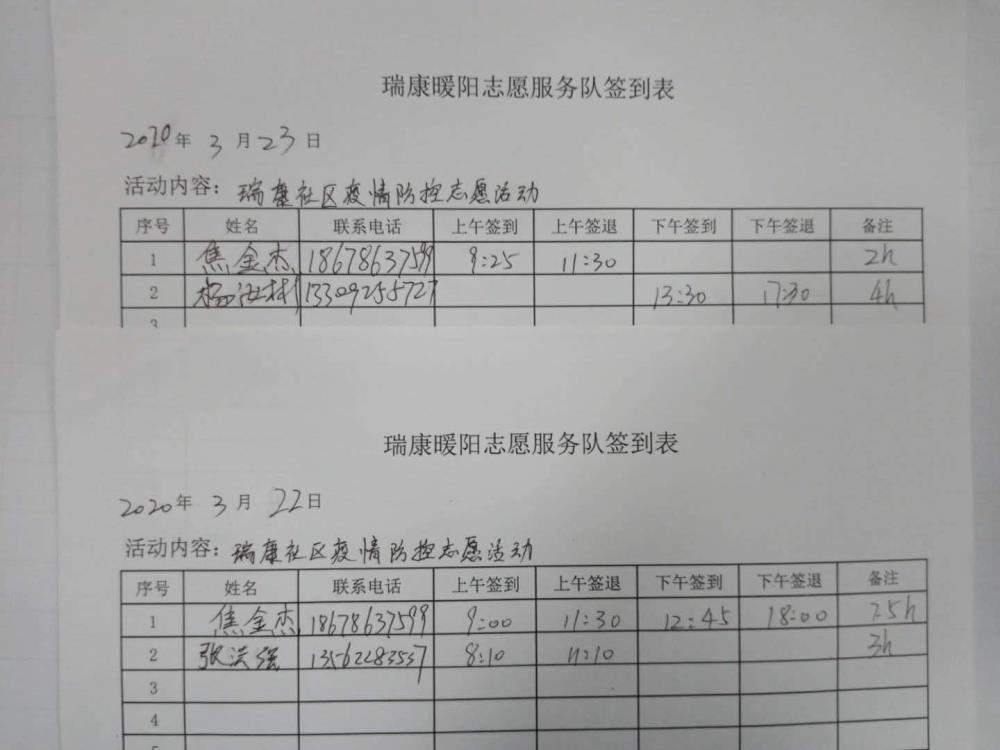 瑞康暖阳志愿服务队签到表
2020年 3 月 23 日
活动内容：瑞康社区疫情防控志愿活动
序号 姓名 联系电话 上午签到 上午签退 下午签到 下午签退 备注
1 焦金杰 18678637599 9:25 11:30 2h
2 13309255727 13:30 17:30 4h
3
瑞康暖阳志愿服务队签到表
2020年 3 月 22 日
活动内容：瑞康社区疫情防控志愿活动
序号 姓名 联系电话 上午签到 上午签退 下午签到 下午签退 备注
1 焦金杰 18678637599 9:00 11:30 12:45 18:00 7.5h
2 张洪强 13562283537 8:10 11:10 3h
3
4
5